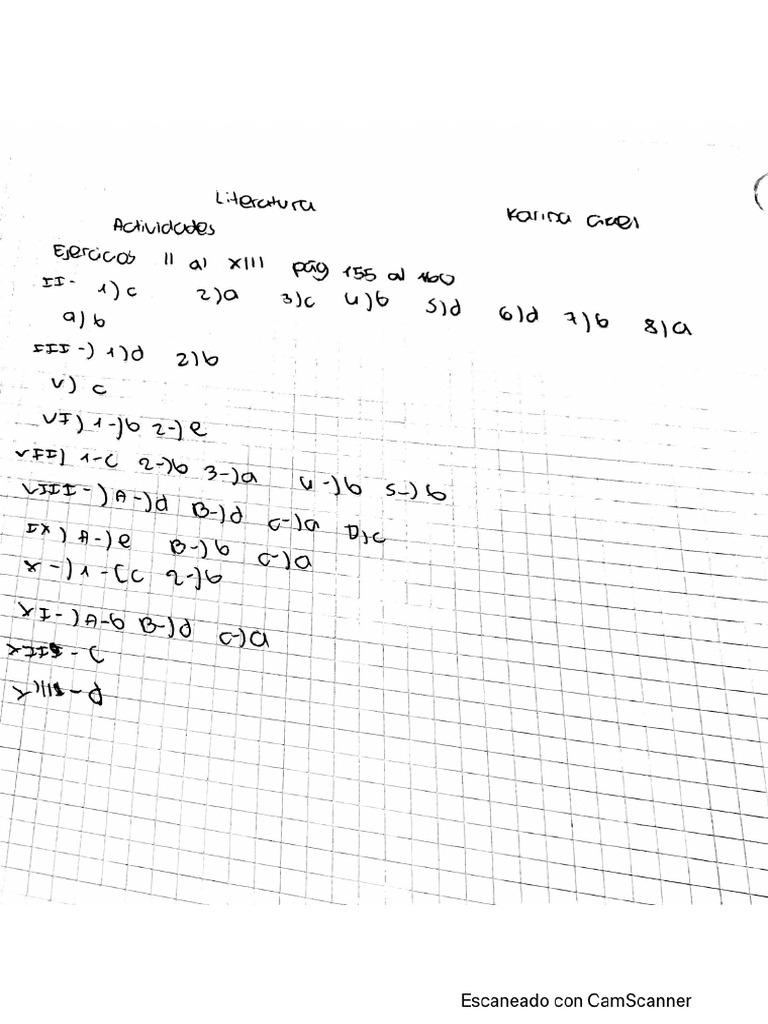 Literatura
Karina
Actividades
Ejercicos II al XIII pág 155 al 160
II- 1)c 2)a 3)c 4)b 5)d 6)d 7)b 8)a
9)b
III-) 1)d 2)b
V) c
VI) 1-)b 2-)e
VII) 1-c 2-)b 3-)a 4-)b 5-)b
VIII-) A-)d B-)d C-)a D)c
IX) A-)e B-)b C-)a
X-) 1-(c 2-)b
XI-) A-b B-)d C-)a
Escaneado con CamScanner